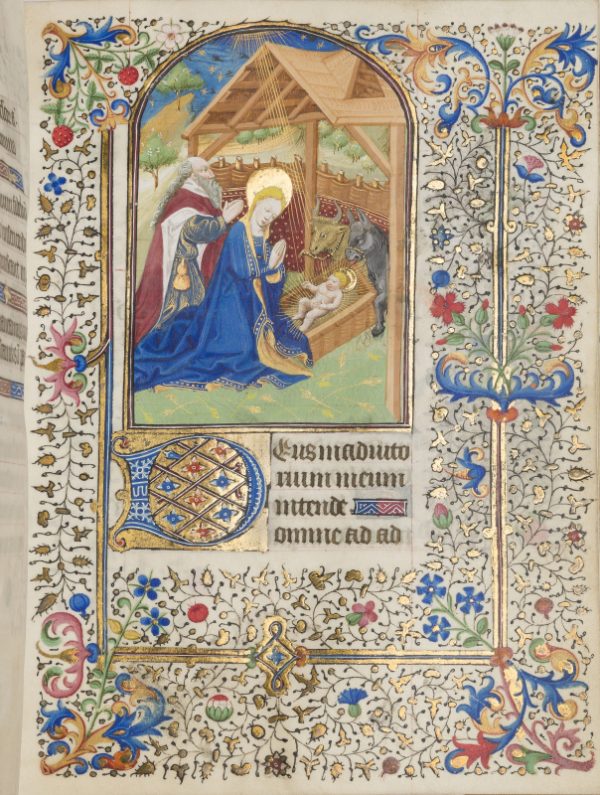 DEus in adiuto
rium meum
intende
omine ad ad